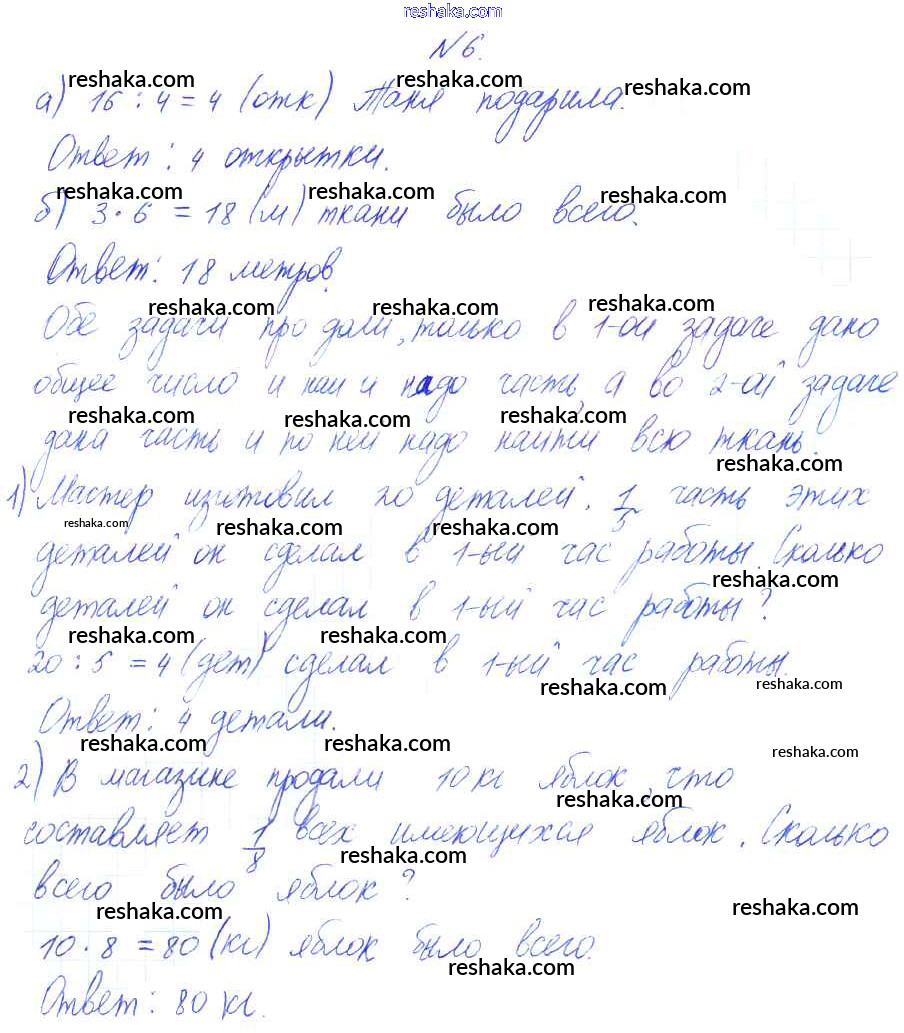 reshaka.com
N 6.
reshaka.com reshaka.com reshaka.com
а) 16 : 4 = 4 (отк) Таня подарила.
Ответ: 4 открытки.
reshaka.com reshaka.com reshaka.com
б) 3 · 6 = 18 (м) ткани было всего.
Ответ: 18 метров.
reshaka.com reshaka.com reshaka.com
Обе задачи про доли, только в 1-ой задаче дано
общее число и надо часть, а во 2-ой задаче
reshaka.com reshaka.com reshaka.com
дана часть и по ней надо найти всю ткань.
reshaka.com
1) Мастер изготовил 20 деталей. 1/5 часть этих
reshaka.com reshaka.com reshaka.com
деталей он сделал в 1-ый час работы. Сколько
reshaka.com
деталей он сделал в 1-ый час работы?
reshaka.com reshaka.com
20 : 5 = 4 (дет) сделал в 1-ый час работы.
reshaka.com reshaka.com
Ответ: 4 детали.
reshaka.com reshaka.com reshaka.com
2) В магазине продали 10 кг яблок, что
reshaka.com
составляет 1/8 всех имеющихся яблок. Сколько
reshaka.com
всего было яблок?
reshaka.com reshaka.com
10 · 8 = 80 (кг) яблок было всего.
reshaka.com
Ответ: 80 кг.